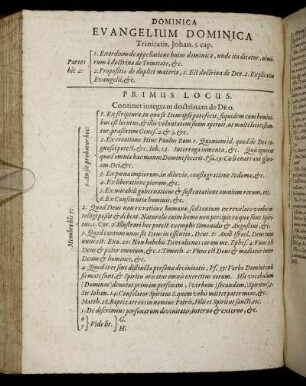 DOMINICA
EVANGELIUM DOMINICA
Trinitatis. Johan. 3. cap.
Partes hic 2:
1. Exordium de appellatione huius dominicæ, unde ita dicatur, nimi-
rum à doctrina de Trinitate, &c.
2. Propositio de duplici materia, 1. Est doctrina de Deo. 2. Explicatio
Evangelii, &c.
PRIMUS LOCUS.
Continet integram doctrinam de Deo.
Membra hic 7:
1. An sit probatur hic:
1. Ex scriptura, in qua se Deus ipse patefecit, siquidem cum homini-
bus est locutus, & illis voluntatem suam aperuit, ut multis licet
tur præsertim Genes. 1. 2. & 3.
2. Ex creatione. Hinc Paulus Rom. 1. Quoniam id, quod de Deo co-
gnosci potest, &c. Job. 12. Interroga iumenta, &c. Quis ignorat
quod omnia hæc manus Domini fecerit. Psa. 19. Cœli enarrant glori-
am Dei.
3. Ex pœna impiorum, in diluvio, conflagratione Sodomæ, &c.
4. Ex liberatione piorum, &c.
5. Ex mirabili gubernatione & sustentatione omnium rerum, &c.
6. Ex Conscientia hominis, &c.
2. Quod Deus non ex ratione humana, sed tantum ex revelato verbo in-
telligi possit & debeat. Naturalis enim homo non percipit ea quæ sunt Spiri-
tus, 1. Cor. 2. Illustrant hoc pasti exemplis Simonidis & Augustini, &c.
3. Quod tantum unus sit Deus in essentia, Deut. 6. Audi Israel, Deus tuus
unus est. Exo. 20. Non habebis Deos alienos coram me. Ephes. 4. Unus est
Deus & pater omnium, &c. 1. Timoth. 2. Unus est Deus & mediator inter
Deum & homines, &c.
4. Quod tres sint distinctæ personæ divinitatis, Ps. 33. Verbo Domini cœli
firmati sunt, & Spiritu oris eius omnis exercitus eorum. Hic vocabulum
(Domini) denotat primam personam, (verbum) secundam, (Spiritus) ter-
tiam. Johan. 14. Consolator Spiritus S. quem vobis mittet pater meus, &c.
Matth. 28. Baptizate eos in nomine Patris, Filii et Spiritus sancti, &c.
5. De discrimine personarum divinitatis, interno & externo, &c.
6. } Vide lit. { G.
7. } { H.